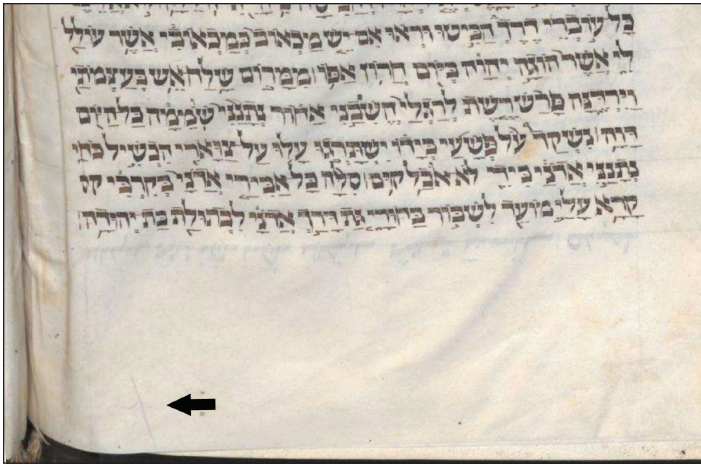 כל עוברי דרך הביטו וראו אם יש מכאוב כמכאובי אשר עולל
לי אשר הוגה יהוה ביום חרון אפו ממרום שלח אש בעצמתי
וירדנה פרש רשת לרגלי השבני אחור נתנני שממה כל היום
דוה נשקד על פשעי בידו ישתרגו עלו על צוארי הכשיל כחי
נתנני אדני בידי לא אכל קום סלה כל אבירי אדני בקרבי
קרא עלי מועד לשבור בחורי גת דרך אדני לבתולת בת יהודה